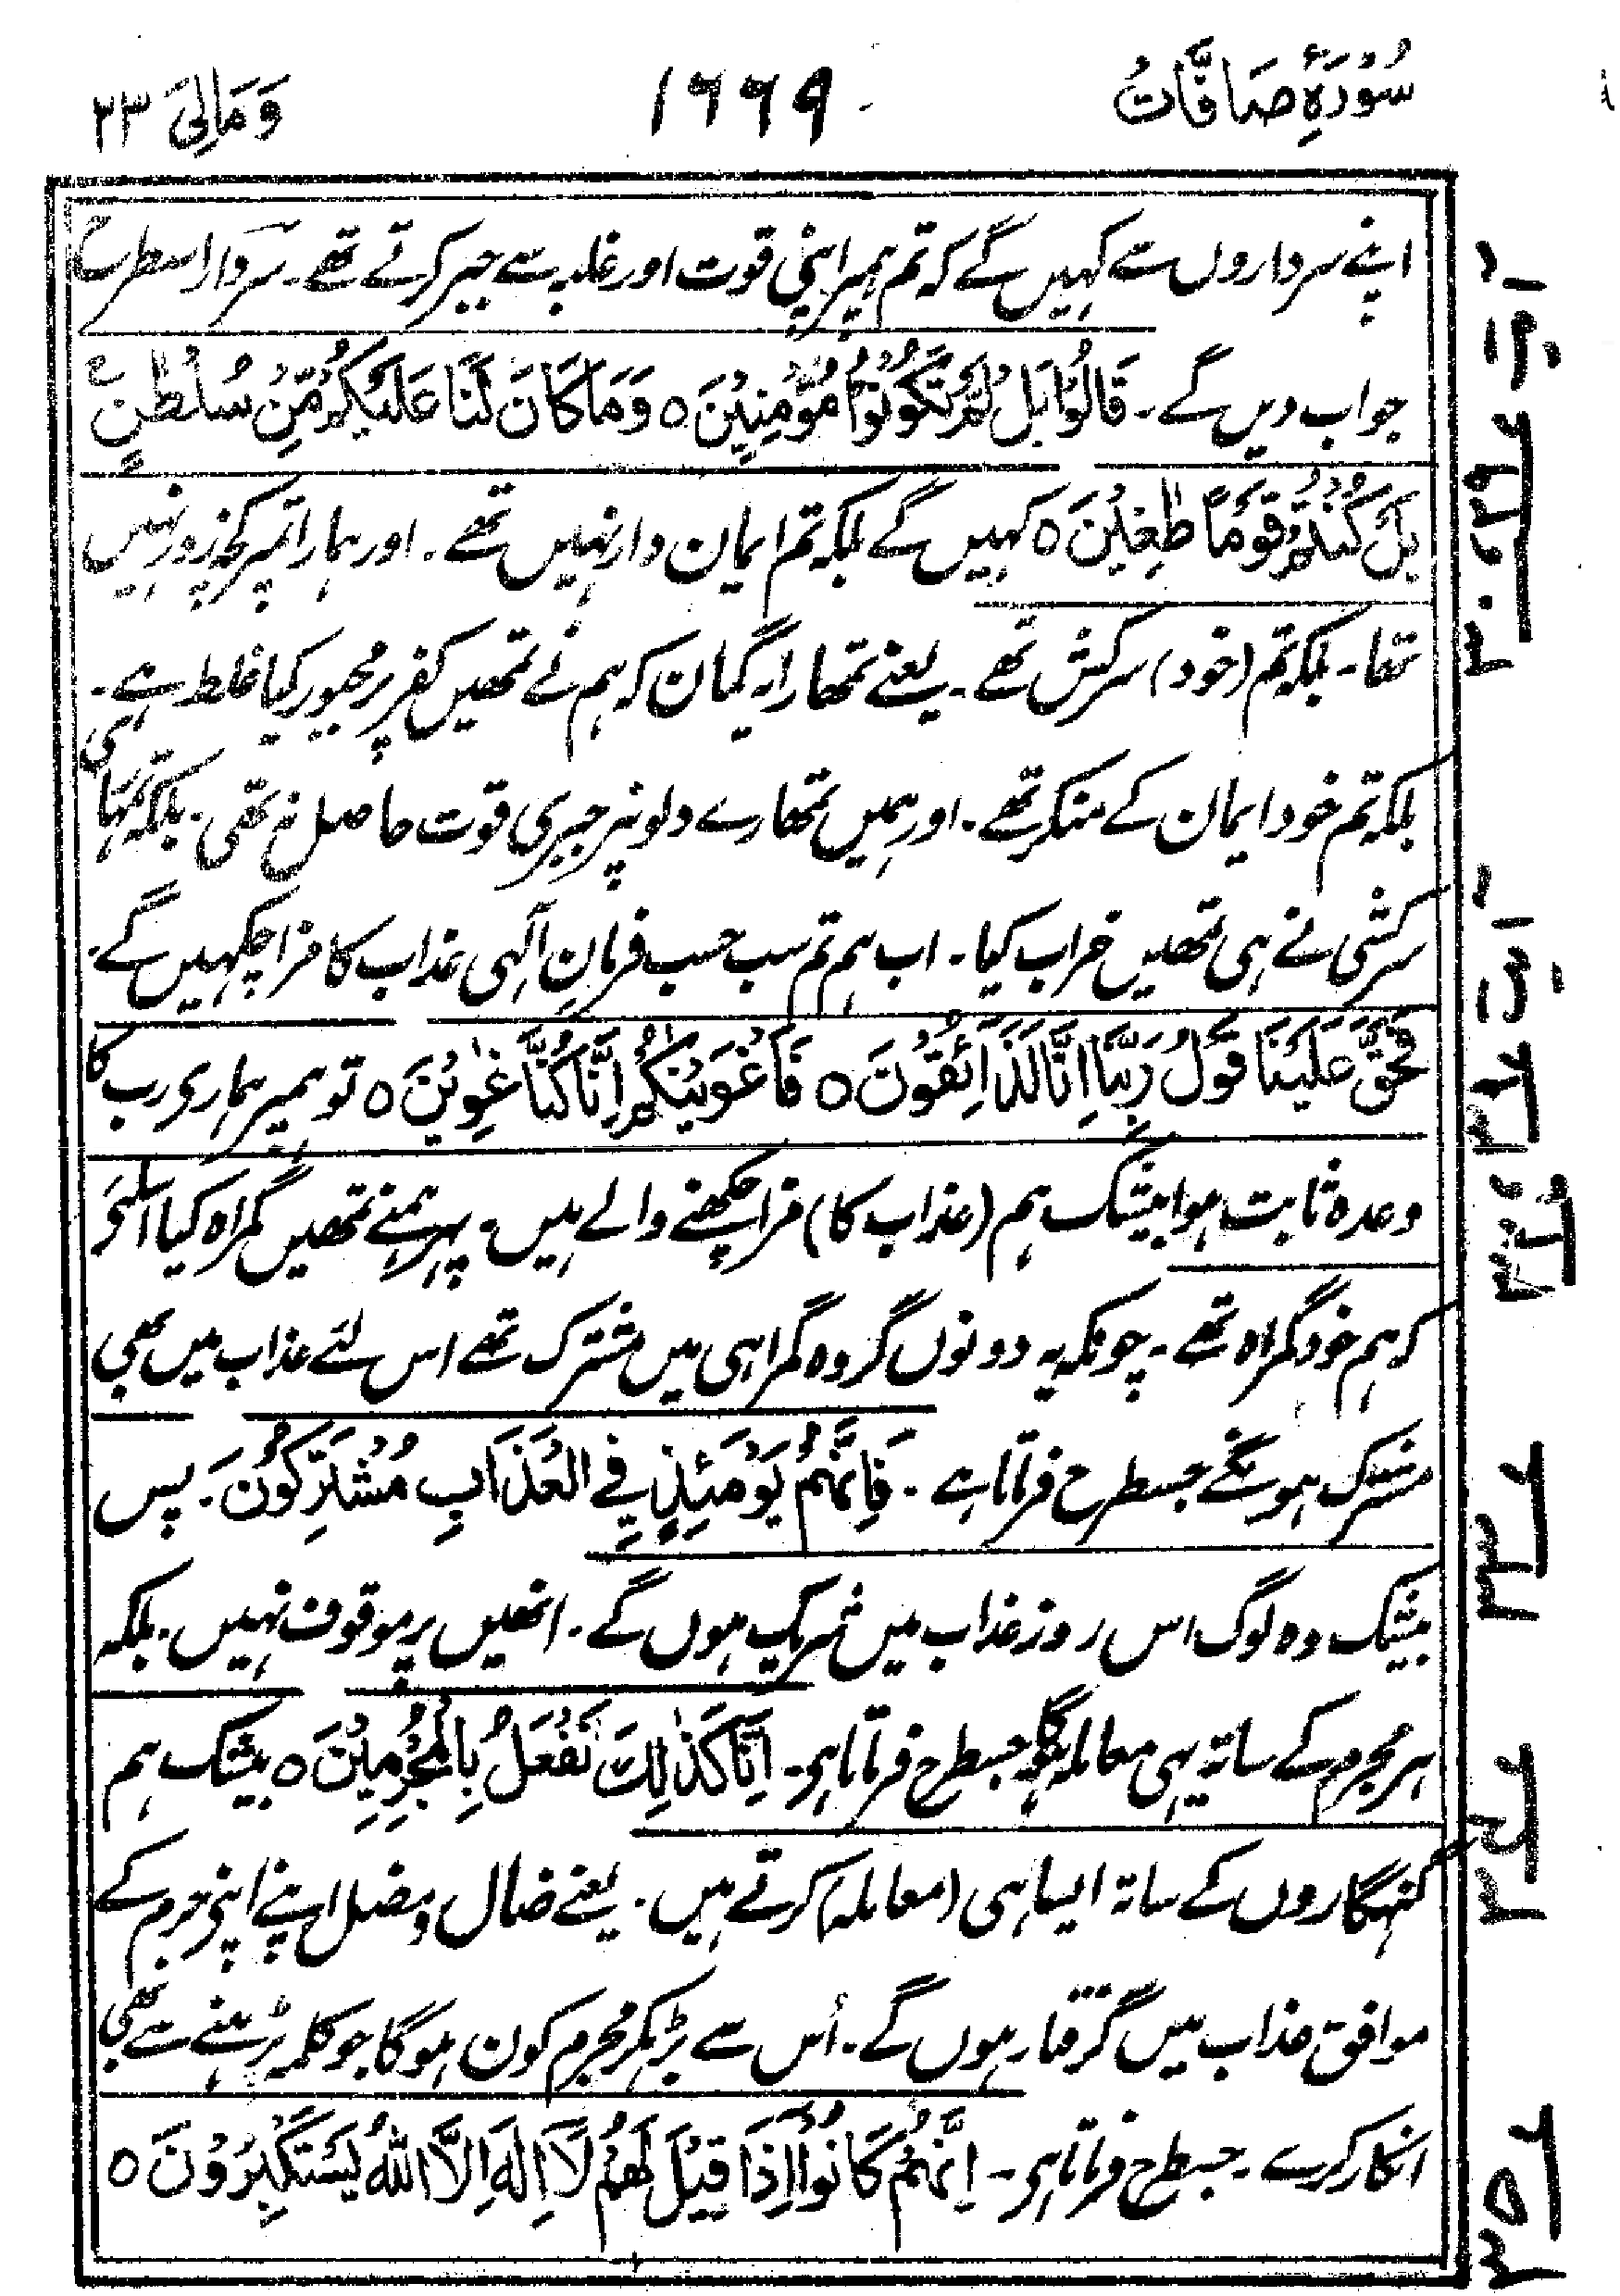 سُوْرَۂِ صَافَّاتُ ۱۶۶۹ وَمَالِیَ ۲۳
اپنے سرداروں سے کہیں گے کہ تم ہمپر اپنی قوت اور غلبہ سے جبر کرتے تھے۔ سردار اسطرح
جواب دیں گے۔ قَالُوْا بَلْ لَّمْ تَكُوْنُوْا مُؤْمِنِيْنَ ٥ وَمَا كَانَ لَنَا عَلَيْكُمْ مِّنْ سُلْطٰنٍ
بَلْ كُنْتُمْ قَوْمًا طٰغِيْنَ ٥ کہیں گے بلکہ تم ایمان دار نہیں تھے۔ اور ہمارا تمپر کچھ زور نہیں
تھا۔ بلکہ تم (خود) سرکش تھے۔ یعنے تمھارا یہ گمان کہ ہم نے تمھیں کفر پر مجبور کیا غلط ہے۔
بلکہ تم خود ایمان کے منکر تھے۔ اور ہمیں تمھارے دلونپر جبری قوت حاصل نہ تھی۔ بلکہ تمہاری
سرکشی نے ہی تمھیں خراب کیا۔ اب ہم تم سب حسب فرمانِ آلٰہی عذاب کا مزا چکہیں گے۔
فَحَقَّ عَلَيْنَا قَوْلُ رَبِّنَا اِنَّا لَذَائِقُوْنَ ٥ فَاَغْوَيْنٰكُمْ اِنَّا كُنَّا غٰوِيْنَ ٥ تو ہمپر ہماری رب کا
وعدہ ثابت ہوا بیشک ہم (عذاب کا) مزا چکھنے والے ہیں۔ پہر ہمنے تمھیں گمراہ کیا اسلئے
کہ ہم خود گمراہ تھے۔ چونکہ یہ دونوں گروہ گمراہی میں مشترک تھے اس لئے عذاب میں بھی
مشترک ہونگے جسطرح فرماتا ہے۔ فَاِنَّهُمْ يَوْمَئِذٍ فِي الْعَذَابِ مُشْتَرِكُوْنَ۔ پس
بیشک وہ لوگ اس روز عذاب میں شریک ہوں گے۔ انھیں پر موقوف نہیں۔ بلکہ
ہر مجرم کے ساتہ یہی معاملہ ہوگا جسطرح فرماتا ہی۔ اِنَّا كَذٰلِكَ نَفْعَلُ بِالْمُجْرِمِيْنَ ٥ بیشک ہم
گنہگاروں کے ساتہ ایسا ہی (معاملہ) کرتے ہیں۔ یعنے ضال و مضل اپنے اپنی جرم کے
موافق عذاب میں گرفتار ہوں گے۔ اُس سے بڑہکر مجرم کون ہوگا جو کلمہ پڑہنے سے بھی
انکار کرے۔ جسطرح فرماتا ہی۔ اِنَّهُمْ كَانُوْا اِذَا قِيْلَ لَهُمْ لَا اِلٰهَ اِلَّا اللّٰهُ يَسْتَكْبِرُوْنَ ٥
آیۃ ۲۹ و ۳۰
آیۃ ۳۱ و ۳۲
۳۳
۳۴
۳۵